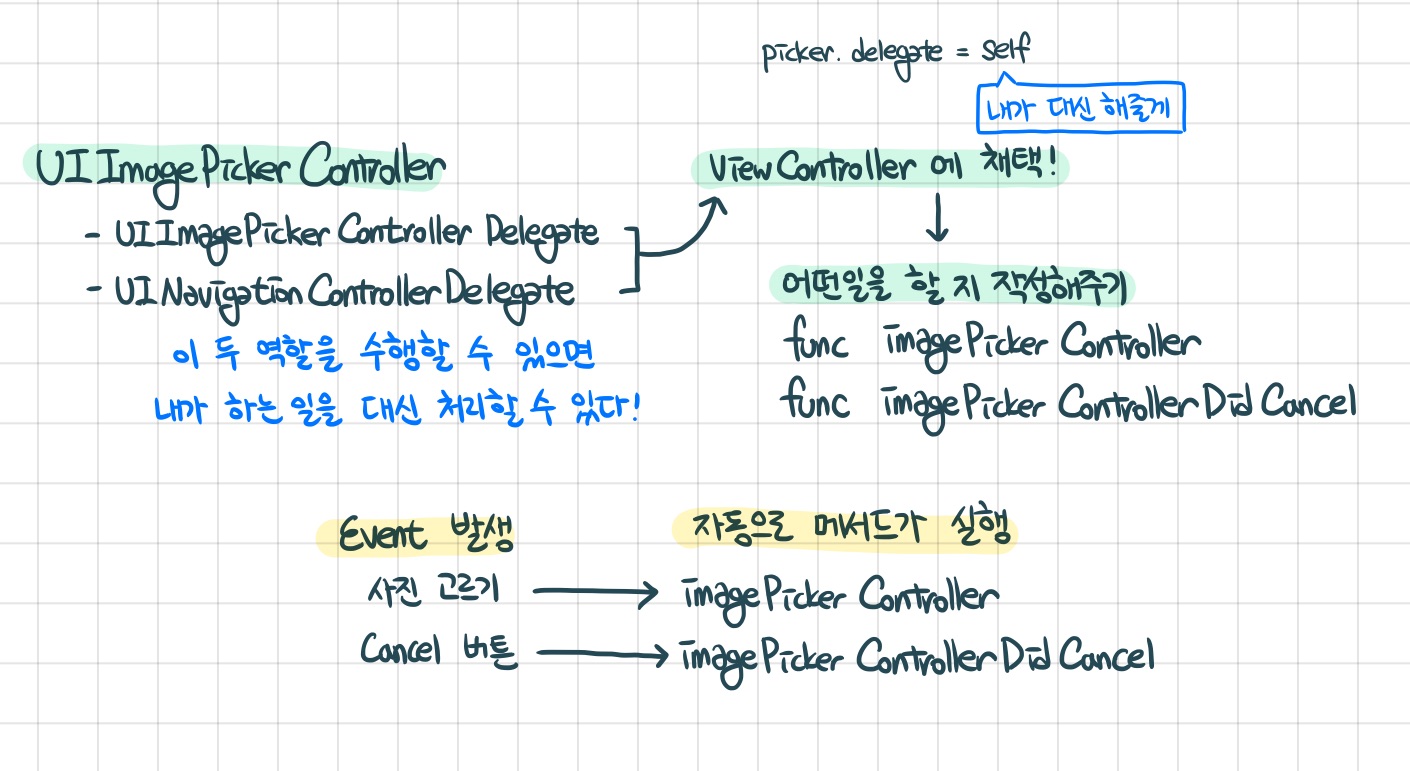 picker. delegate = self
내가 대신 해줄게
UIImagePickerController
- UIImagePickerControllerDelegate
- UINavigationControllerDelegate
이 두 역할을 수행할 수 있으면
내가 하는일을 대신 처리할 수 있다!
ViewController 에 채택!
어떤일을 할 지 작성해주기
func imagePickerController
func imagePickerControllerDidCancel
Event 발생
자동으로 메서드가 실행
사진 고르기
imagePickerController
Cancel 버튼
imagePickerControllerDidCancel